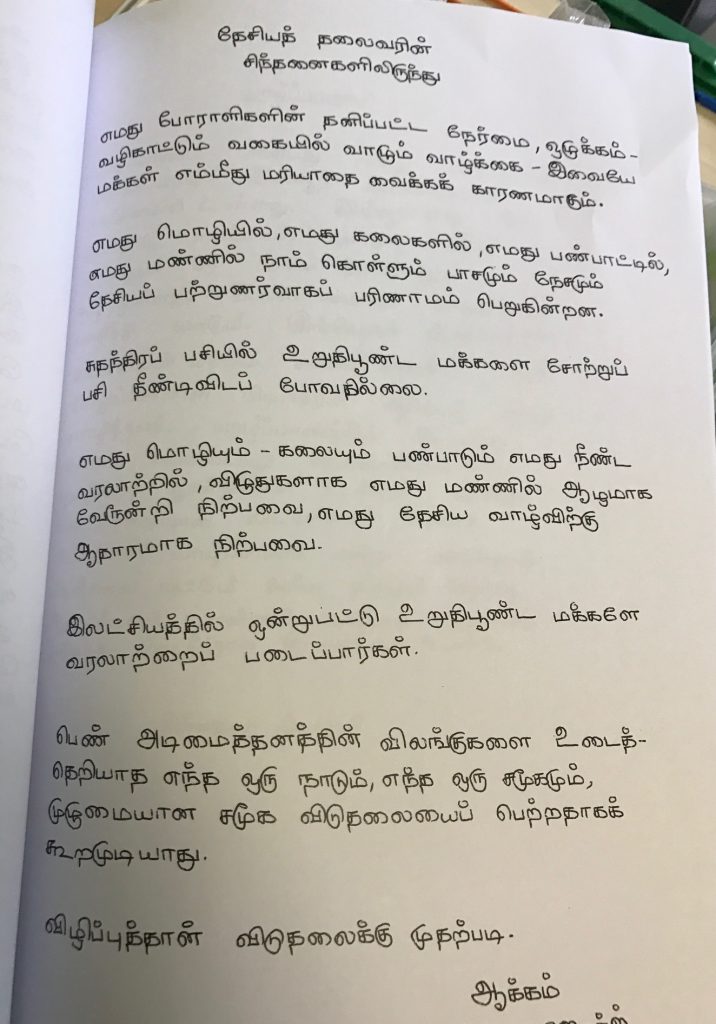 தேசியத் தலைவரின்
சிந்தனைகளிலிருந்து
எமது போராளிகளின் தனிப்பட்ட நேர்மை, ஒடுக்கம் -
வழிகாட்டும் வகையில் வாடும் வாழ்க்கை - இவையே
மக்கள் எம்மீது மரியாதை வைக்கக் காரணமாகும்.
எமது மொழியில், எமது கலைகளில், எமது பண்பாட்டில்,
எமது மண்ணில் நாம் கொள்ளும் பாசமும் நேசமும்
தேசியப் பற்றுணர்வாகப் பரிணாமம் பெறுகின்றன.
சுதந்திரப் பசியில் உறுதிபூண்ட மக்களை சோற்றுப்
பசி தீண்டிவிடப் போவதில்லை.
எமது மொழியும் - கலையும் பண்பாடும் எமது நீண்ட
வரலாற்றில், விழுதுகளாக எமது மண்ணில் ஆழமாக
வேரூன்றி நிற்பவை, எமது தேசிய வாழ்விற்கு
ஆதாரமாக நிற்பவை.
இலட்சியத்தில் ஒன்றுபட்டு உறுதிபூண்ட மக்களே
வரலாற்றைப் படைப்பார்கள்.
பெண் அடிமைத்தனத்தின் விலங்குகளை உடைத்-
தெறியாத எந்த ஒரு நாடும், எந்த ஒரு சமூகமும்,
முழுமையான சமூக விடுதலையைப் பெற்றதாகக்
கூறமுடியாது.
விழிப்புத்தான் விடுதலைக்கு முதற்படி.
ஆக்கம்